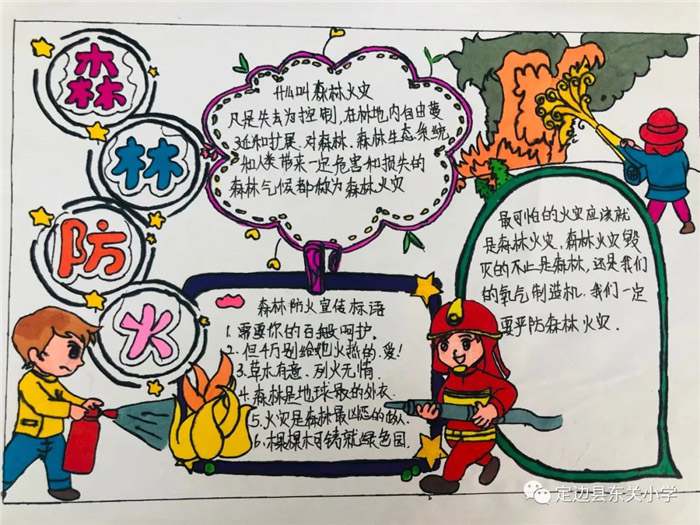 森
林
防
火
什么叫森林火灾
凡是失去为控制,在林地内自由蔓
延和扩展.对森林.森林生态系统
和人类带来一定危害和损失的
森林气候都做为森林火灾
森林防火宣传标语
1.需要你的百般呵护.
2.但千万别给他火热的爱!
3.草木有意.烈火无情
4.森林是地球最的外衣.
5.火灾是森林最凶恶的敌人.
6.棵棵树铸就绿色园.
最可怕的火灾应该就
是森林火灾.森林火灾毁
灭的不止是森林,还是我们
的氧气制造机.我们一定
要严防森林火灾.
定边县东关小学